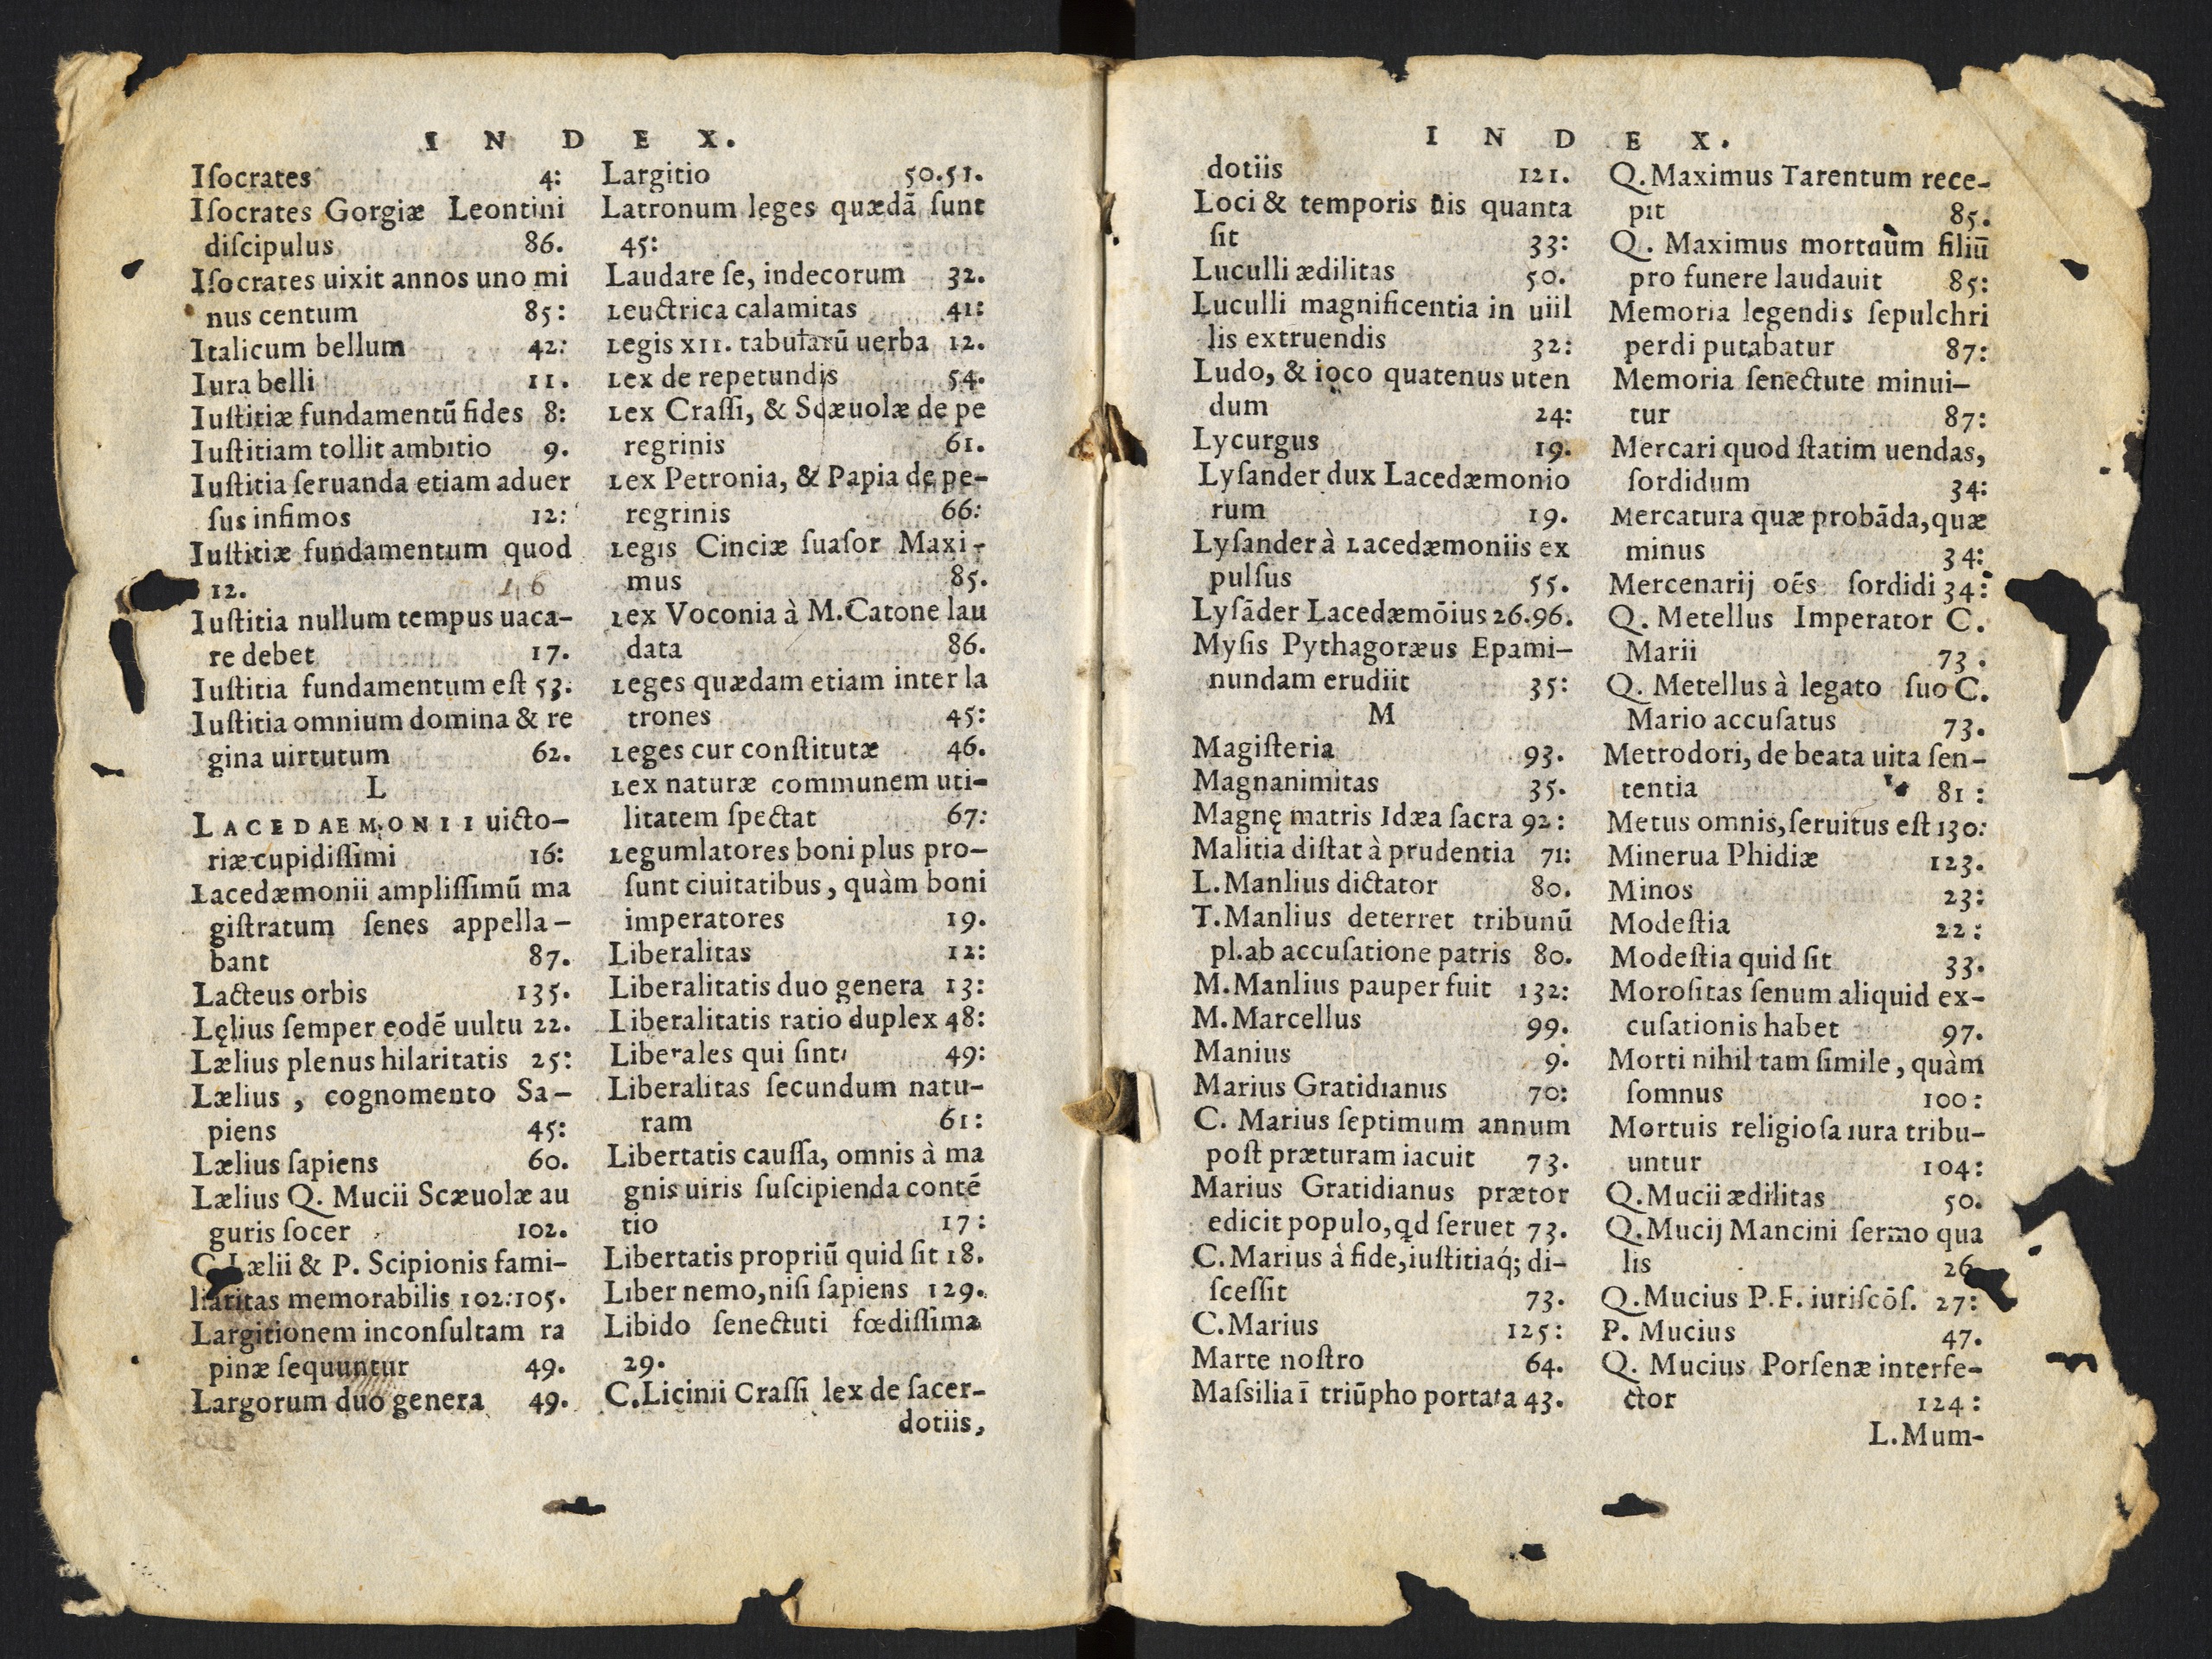 I N D E X.
Iſocrates 4:
Iſocrates Gorgiæ Leontini
diſcipulus 86.
Iſocrates uixit annos uno mi
nus centum 85:
Italicum bellum 42:
Iura belli 11.
Iuſtitiæ fundamentū fides 8:
Iuſtitiam tollit ambitio 9.
Iuſtitia ſeruanda etiam aduer
ſus infimos 12:
Iuſtitiæ fundamentum quod
12.
Iuſtitia nullum tempus uaca-
re debet 17.
Iuſtitia fundamentum eſt 53.
Iuſtitia omnium domina & re
gina uirtutum 62.
L
LACEDAEMONII uicto-
riæ cupidiſſimi 16:
Lacedæmonii ampliſſimū ma
giſtratum ſenes appella-
bant 87.
Lacteus orbis 135.
Lęlius ſemper eodē uultu 22.
Lælius plenus hilaritatis 25:
Lælius, cognomento Sa-
piens 45:
Lælius ſapiens 60.
Lælius Q. Mucii Scæuolæ au
guris ſocer 102.
C. Lælii & P. Scipionis fami-
liaritas memorabilis 102:105.
Largitionem inconſultam ra
pinæ ſequuntur 49.
Largorum duo genera 49.
Largitio 50.51.
Latronum leges quædā ſunt
45:
Laudare ſe, indecorum 32.
Leuctrica calamitas 41:
Legis XII. tabularū uerba 12.
Lex de repetundis 54.
Lex Craſſi, & Scæuolæ de pe
regrinis 61.
Lex Petronia, & Papia de pe-
regrinis 66:
Legis Cinciæ ſuaſor Maxi-
mus 85.
Lex Voconia à M.Catone lau
data 86.
Leges quædam etiam inter la
trones 45:
Leges cur conſtitutæ 46.
Lex naturæ communem uti-
litatem ſpectat 67:
Legumlatores boni plus pro-
ſunt ciuitatibus, quàm boni
imperatores 19.
Liberalitas 12:
Liberalitatis duo genera 13:
Liberalitatis ratio duplex 48:
Liberales qui ſint 49:
Liberalitas ſecundum natu-
ram 61:
Libertatis cauſſa, omnis à ma
gnis uiris ſuſcipienda contē
tio 17:
Libertatis propriū quid ſit 18.
Liber nemo, niſi ſapiens 129.
Libido ſenectuti fœdiſſima
29.
C.Licinii Craſſi lex de ſacer-
dotiis,
I N D E X.
dotiis 121.
Loci & temporis uis quanta
ſit 33:
Luculli ædilitas 50.
Luculli magnificentia in uiil
lis extruendis 32:
Ludo, & ioco quatenus uten
dum 24:
Lycurgus 19.
Lyſander dux Lacedæmonio
rum 19.
Lyſander à Lacedæmoniis ex
pulſus 55.
Lyſāder Lacedæmōius 26.96.
Myſis Pythagoræus Epami-
nundam erudiit 35:
M
Magiſteria 93.
Magnanimitas 35.
Magnę matris Idæa ſacra 92:
Malitia diſtat à prudentia 71:
L.Manlius dictator 80.
T.Manlius deterret tribunū
pl.ab accuſatione patris 80.
M.Manlius pauper fuit 132:
M.Marcellus 99.
Manius 9.
Marius Gratidianus 70:
C. Marius ſeptimum annum
poſt præturam iacuit 73.
Marius Gratidianus prætor
edicit populo, qd ſeruet 73.
C.Marius à fide, iuſtitiaq́; di-
ſceſſit 73.
C.Marius 125:
Marte noſtro 64.
Maſsilia ī triūpho portata 43.
Q.Maximus Tarentum rece-
pit 85.
Q. Maximus mortuùm filiū
pro funere laudauit 85:
Memoria legendis ſepulchri
perdi putabatur 87:
Memoria ſenectute minui-
tur 87:
Mercari quod ſtatim uendas,
ſordidum 34:
Mercatura quæ probāda, quæ
minus 34:
Mercenarij oēs ſordidi 34:
Q. Metellus Imperator C.
Marii 73.
Q. Metellus à legato ſuo C.
Mario accuſatus 73.
Metrodori, de beata uita ſen-
tentia 81:
Metus omnis, ſeruitus eſt 130:
Minerua Phidiæ 123.
Minos 23:
Modeſtia 22:
Modeſtia quid ſit 33.
Moroſitas ſenum aliquid ex-
cuſationis habet 97.
Morti nihil tam ſimile, quàm
ſomnus 100:
Mortuis religioſa iura tribu-
untur 104:
Q.Mucii ædilitas 50.
Q.Mucij Mancini ſermo qua
lis 26
Q.Mucius P.F. iuriſcōſ. 27:
P. Mucius 47.
Q. Mucius Porſenæ interfe-
ctor 124:
L.Mum-